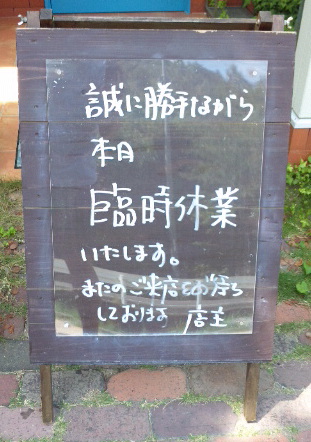 誠に勝手ながら
本日
臨時休業
いたします。
またのご来店をお待ち
しております 店主